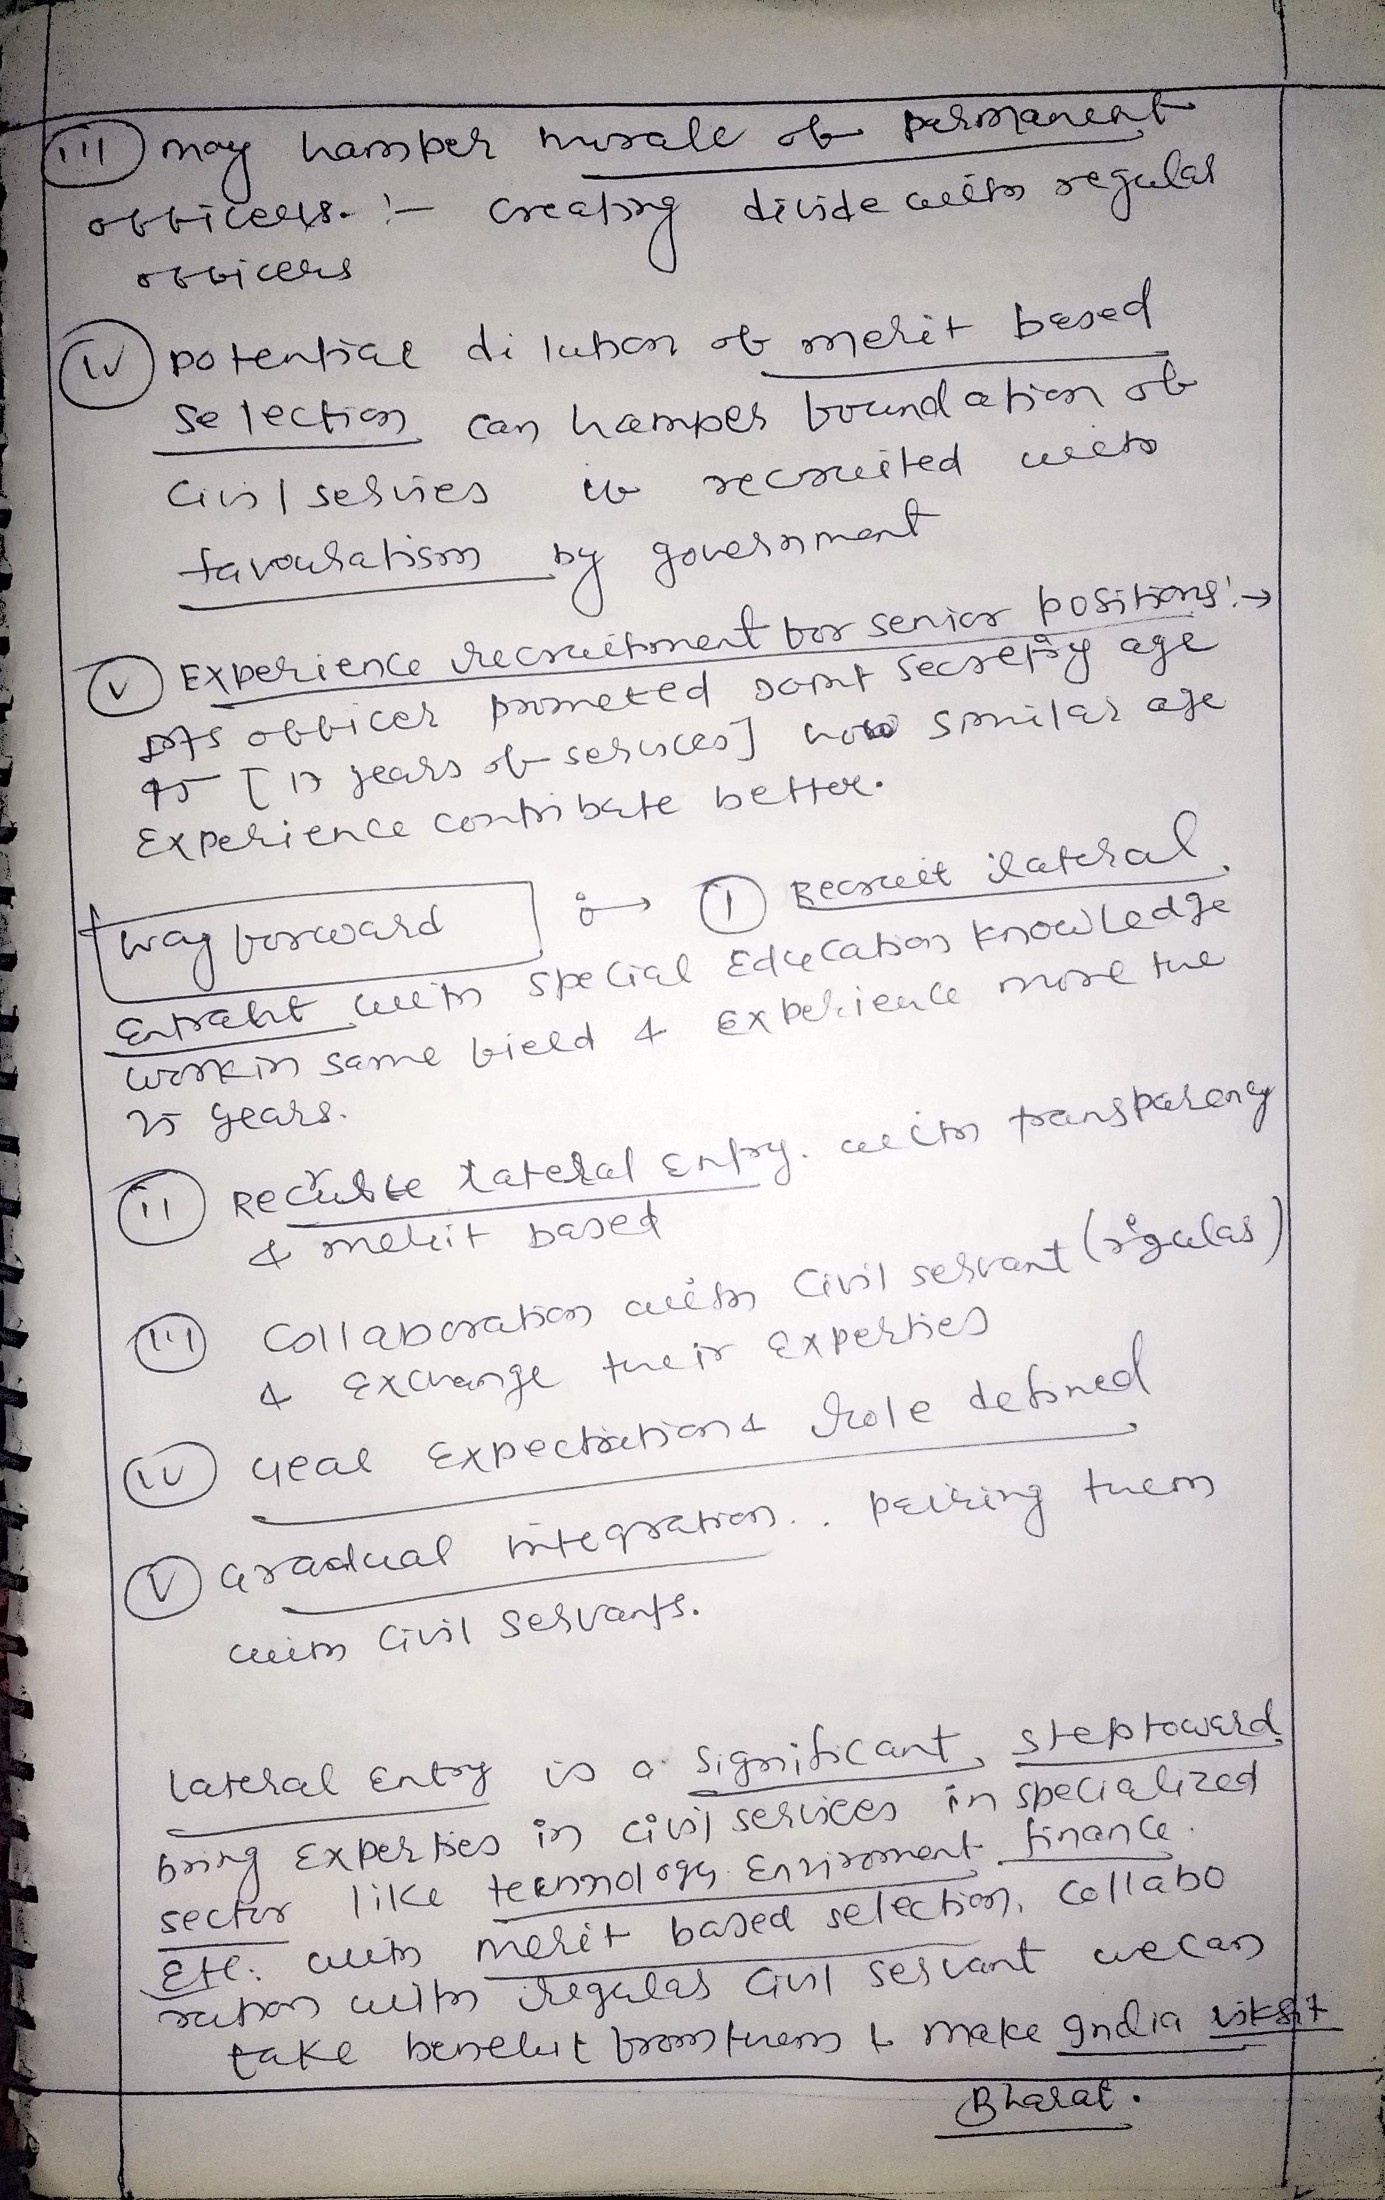 (iii) may hamper morale of permanent
officers. :- creating divide with regular
officers
(iv) potential dilution of merit based
selection can hamper foundation of
Civil servies if recruited with
favouratism by government
(v) Experience recruitment for senior positions :→
officer promoted Joint Secretry age
45 [17 years of services] how similar age
Experience contribute better.
way forward :→ (1) Recruit lateral
Entrant with special Education knowledge
work in same field & experience more the
25 years.
(ii) Recruite lateral Entry. with transparency
& merit based
(iii) Collaboration with Civil servant (regular)
& exchange their experties
(iv) Expectation & role defined
(v) Gradual integration.. pairing them
with Civil Servants.
lateral Entry is a significant step toward
bring Experties in civil services in specialized
sector like technology Enviroment finance.
Etc. with merit based selection, collabo
ration with regular Civil servant we can
take benefit from them & make India viksit
Bharat.